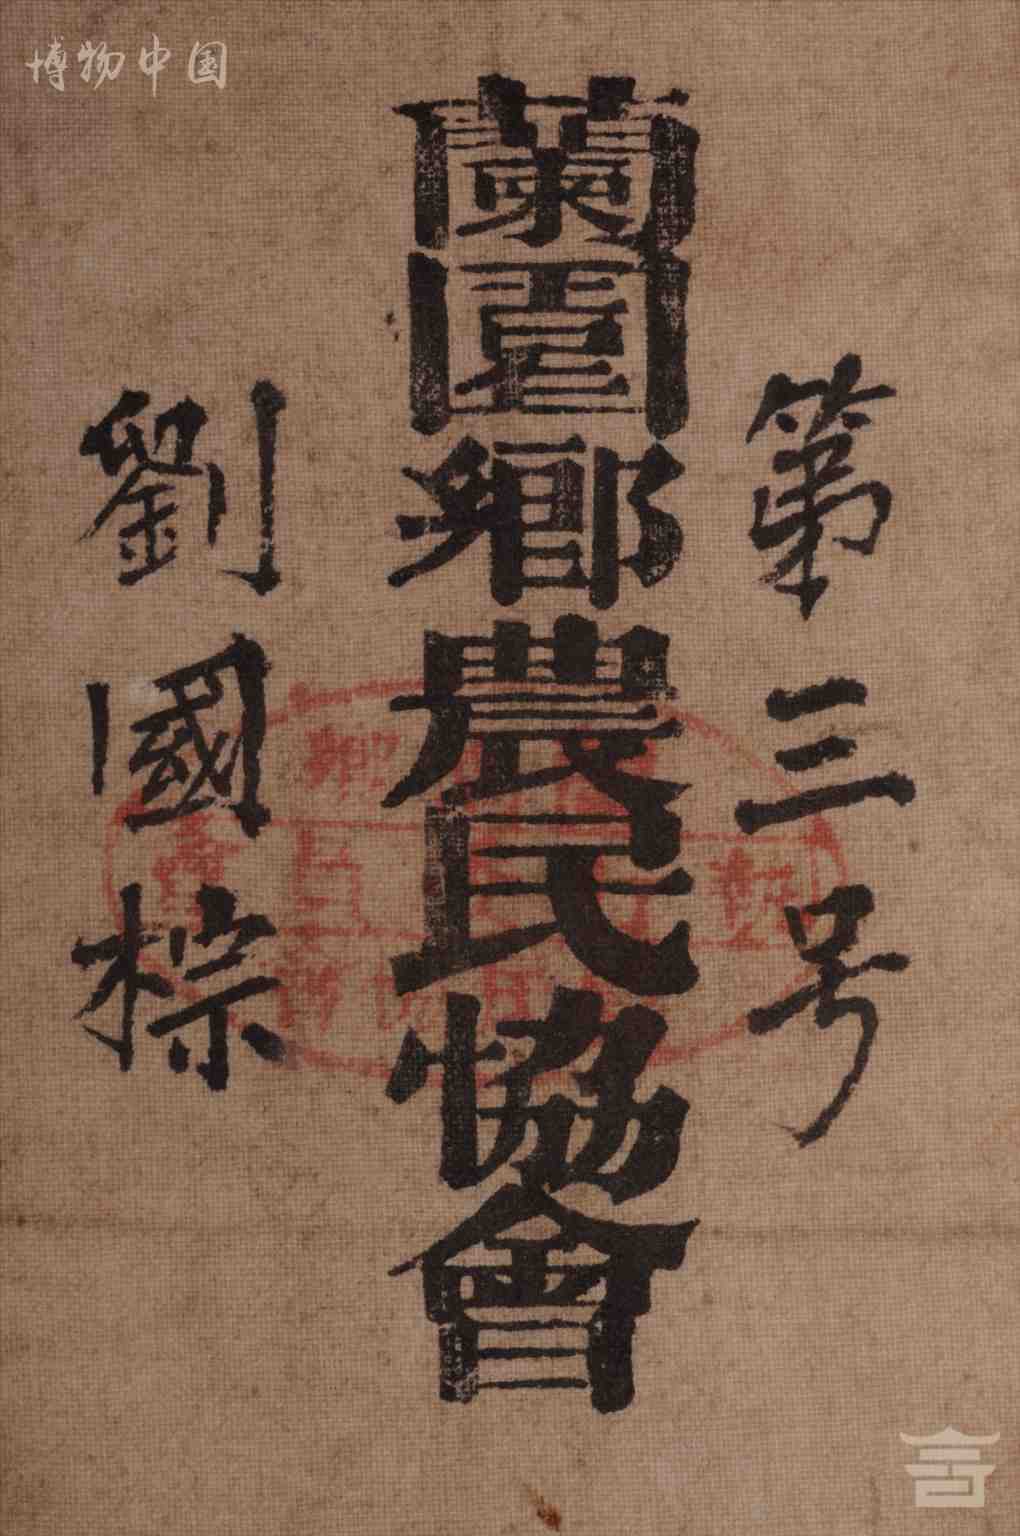 博物中国
第三号
蘭圃鄉農民協會
劉國棕